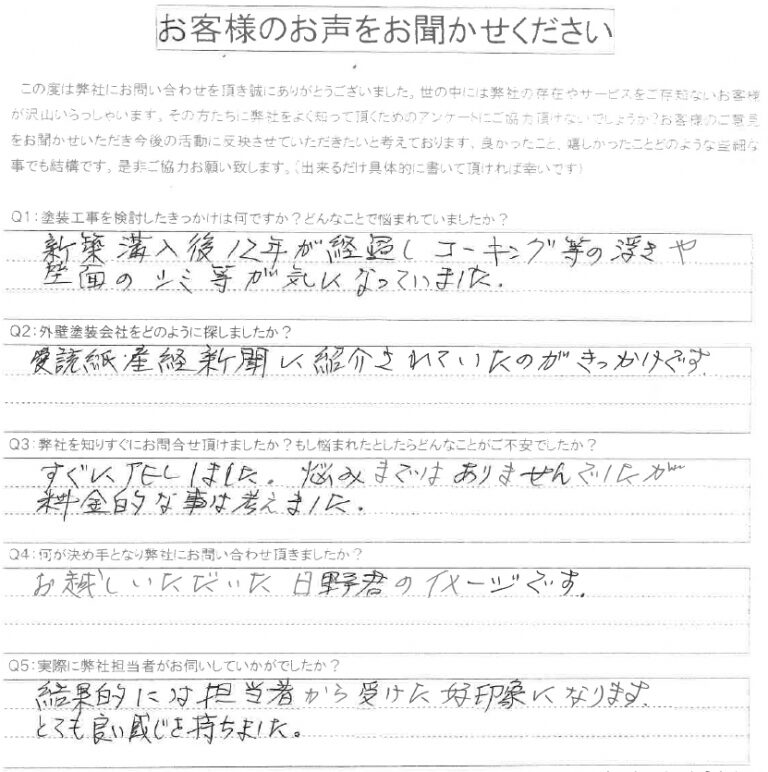 お客様のお声をお聞かせください
この度は弊社にお問い合わせを頂き誠にありがとうございました。世の中には弊社の存在やサービスをご存知ないお客様
が沢山いらっしゃいます。その方たちに弊社をよく知って頂くためのアンケートにご協力頂けないでしょうか?お客様のご意見
をお聞かせいただき今後の活動に反映させていただきたいと考えております、良かったこと、嬉しかったことどのような些細な
事でも結構です。是非ご協力お願い致します。(出来るだけ具体的に書いて頂ければ幸いです)
Q1:塗装工事を検討したきっかけは何ですか?どんなことで悩まれていましたか?
新築購入後12年が経過しコーキング等の浮きや
壁面のシミ等が気になっていました.
Q2:外壁塗装会社をどのように探しましたか?
愛読紙産経新聞に紹介されていたのがきっかけです.
Q3:弊社を知りすぐにお問合せ頂けましたか?もし悩まれたとしたらどんなことがご不安でしたか?
すぐにTELしました. 悩みまではありませんでしたが
料金的な事は考えました.
Q4:何が決め手となり弊社にお問い合わせ頂きましたか?
お越しいただいた日野君のイメージです.
Q5:実際に弊社担当者がお伺いしていかがでしたか?
結果的には担当者から受けた好印象になります.
とても良い感じを持ちました。